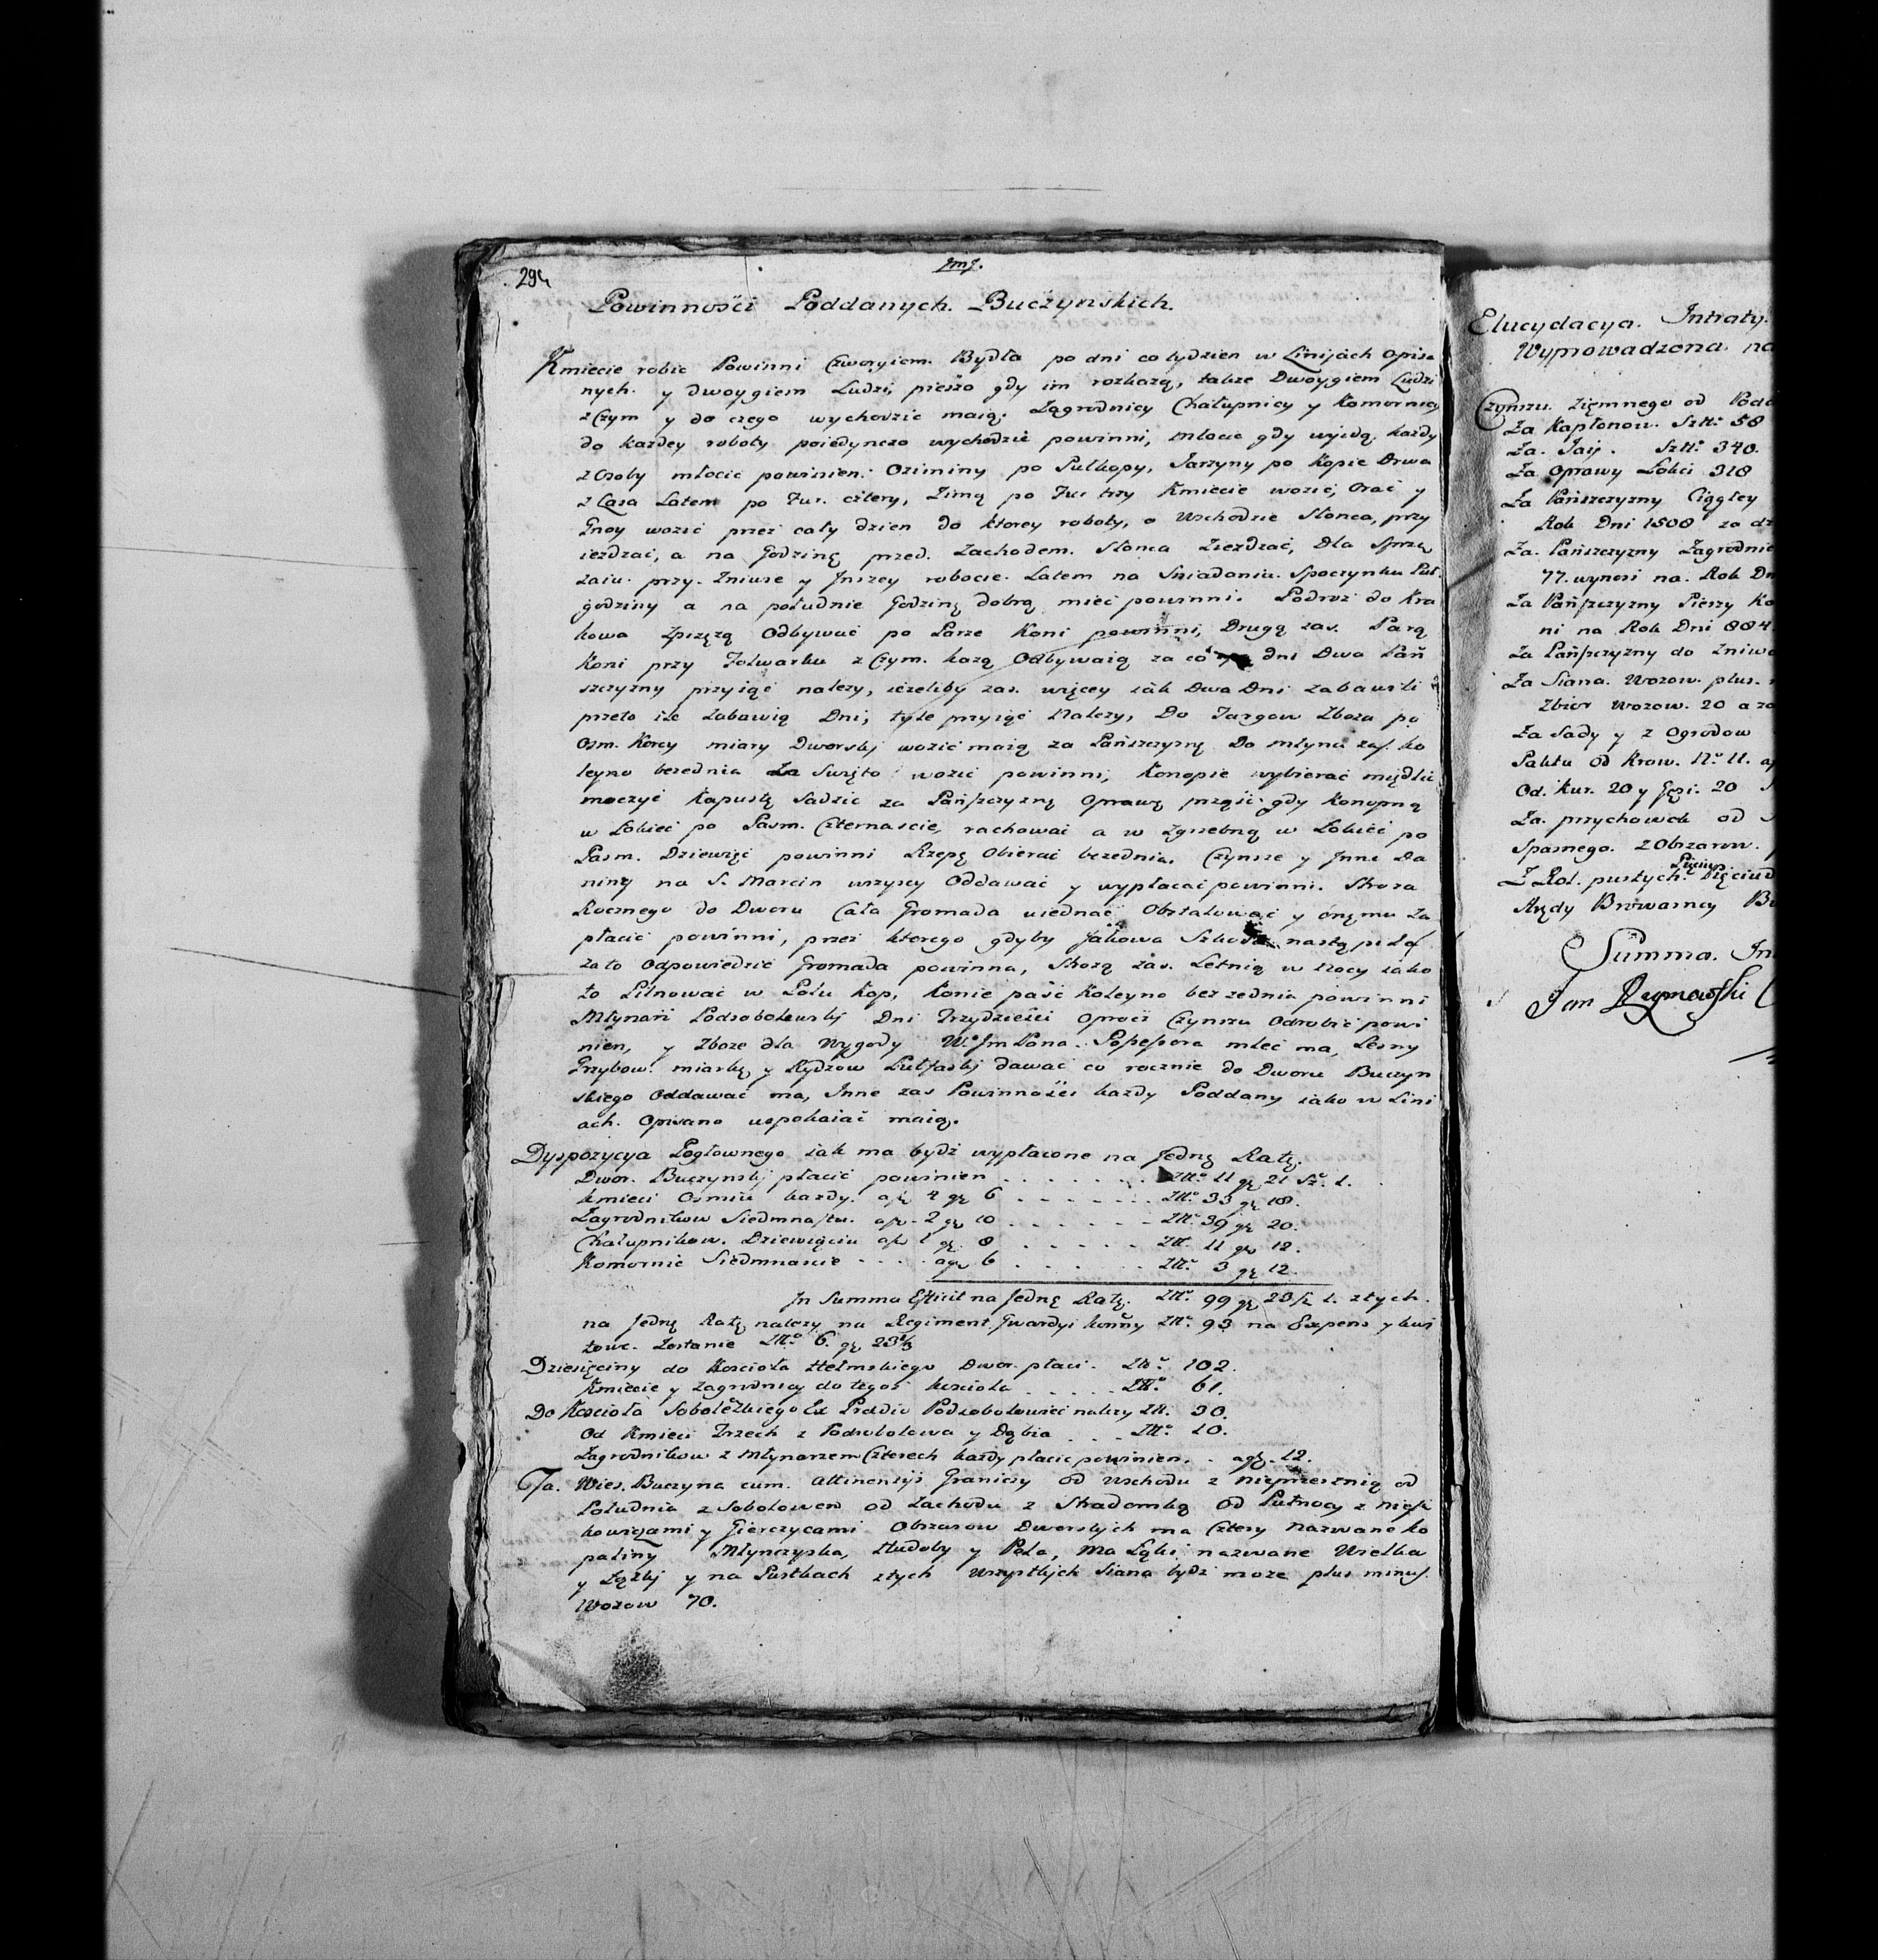 294
Powinności Poddanych Buczyńskich.
Kmiecie robic Powinni Czworgiem. Bydła po dni co tydzien w Linijach opisa
nych. y dwoygiem Ludzi, pieszo gdy im rozkazą, takze Dwoygiem Ludzi
z Czym y do czego wychodzic maią. Zagrodnicy Chałupnicy y Komornicy
do kazdey roboty poiedynczo wychodzic powinni, młocic gdy wyidą. kazdy
z Osoby młocic powinien. Oziminy po Pułkopy, Jarzyny po Kopie Drwa
z Lasa Latem po Fur. cztery, Zimą po Fur trzy Kmiecie wozic, Orać y
Gnoy wozić przez cały dzien do ktorey roboty, o Wschodzie Słonca, przy
iezdzać, a na Godzinę przed. Zachodem. Słonca Ziezdzać, Dla Sprzę
zaiu. przy. Zniwie y Jnszey robocie. Latem na Sniadaniu. Spoczynku Puł.
godziny a na południe Godzinę dobrą mieć powinni. Podroz do Kra
kowa Zprzęzą Odbywać po Parze Koni powinni, Drugą zas. Parą
Koni przy Folwarku z Czym. kazą Odbywaią za co dni Dwa Pań
szczyzny przyiąć nalezy, iezeliby zas. więcey iak Dwa Dni zabawili
przeto ile Zabawią Dni, tyle przyiąć Nalezy, Do Targow Zboza po
Osm. Korcy miary Dworskij wozić maią za Pańszczyznę Do młyna zas. ko
leyno bezednia Za Swięto wozić powinni, Konopie wybierać międlić
moczyć Kapustę Sadzic za Pańszczyznę Oprawę prząść gdy Konopną
w Łokieć po Pasm. Czternascie, rachować a w Zgrzebną w Łokieć po
Pasm. Dziewięć powinni Rzepę Obierać bezednia. Czynsze y Jnne Da
niny na S. Marcin wszyscy Oddawać y wypłacać powinni. Stroza
Rocznego do Dworu Cała Gromada uiednać Obstalować y onęmu Za
płacić powinni, przez ktorego gdyby Jakowa Szkoda nastąpiła
zato Odpowiedzić Gromada powinna, Strozą zas. Letnią w nocy iako
to Pilnować w Polu Kop, Konie paść Koleyno bez zednia powinni
Młynarz Podsobolewskij Dni Trzydzieści oprocz Czynszu Odrobić powi
nien, y Zboze dla Wygody W.º Jm Pana. Possessora mleć ma, Lesny
Grzybow. miarkę y Rydzow Pułfaskij dawać co rocznie do Dworu Buczyn
skiego Oddawać ma, Inne zas Powinności kazdy Poddany iako w Lini
ach. Opisano uspokaiać maią.
Dyspozycya Pogłownego iak ma bydź wypłacone na Jednę Ratę.
Dwor. Buczynskij płacić powinien . . . . . . . Ztt.º 11 gr 21 Sz.º 1.
Kmieci Osmiu kazdy. a fl 4 gr 6 . . . . . . Ztt.º 33 gr 18.
Zagrodnikow Siedmnastu. a fl. 2 gr 10 . . . . . Ztt.º 39 gr 20.
Chałupnikow. Dziewięciu a fl 1 gr. 8 . . . . . Ztt. 11 gr 12.
Komornic Siedmnascie . . . . a gr 6 . . . . . Ztt.º 3 gr 12.
Jn Summa Efficit na Jednę Ratę. Ztt.º 99 gr 23 / Sz 1. ztych.
na Jednę Ratę nalezy na Regiment. Gwardyi konny Ztt.º 93 na Expens y kwi
towe. Zostanie Ztt.º 6. gr 23 1/3
Dziesięciny do Koscioła Hełmskiego Dwor. płaci. Ztt.º 102.
Kmiecie y Zagrodnicy do tegoz koscioła . . . . . Ztt.º 61.
Do Koscioła Sobolewskiego Ex Prædio Podsobolowiec nalezy Ztt. 30.
Od Kmieci Trzech z Podsobolowa y Dąbia . . . Ztt.º 10.
Zagrodnikow z Młynarzem Czterech kazdy płacic powinien. . a gr. 12.
Ta. Wies. Buczyna cum. attinentijs Graniczy od Wschodu z Nieprzesnią od
Południa z Sobolowem od Zachodu z Stradomką od Pułnocy z Niesz
kowicami y Gierczycami Obszarow Dworskijch ma Cztery nazwane ko
paliny Młynczyska, Hudoby y Pola, ma Łąki nazwane Wielka
y Łęzkij y na Pustkach ztych Wszystkijch Siana bydź moze plus minus.
Wozow 70.
Elucydacya. Intraty.
Wyprowadzona. na
Czynszu. Ziemnego od Podd
Za Kapłonow. Sztt.º 58
Za. Jaij. Sztt.º 340.
Za Oprawy Łokci 318
Za Pańszczyzny Ciągłey
Rok Dni 1508 za dz
Za. Pańszczyzny Zagrodnic
77. wynosi na. Rok Dn
Za Pańszczyzny Pieszy Ko
ni na Rok Dni 884
Za Pańszczyzny do Zniwa
Za Siana. Wozow. plus.
Zbior Wozow. 20 a zo
Za Sady y z Ogrodow
Paktu od Krow. N.º 11. a
Od. Kur. 20 y Gęsi. 20
Za. przychowek od
Spasnego. z Obszarow.
Z Rol. pustych. Pięciu
Arędy Browarney
Summa. In
Jan